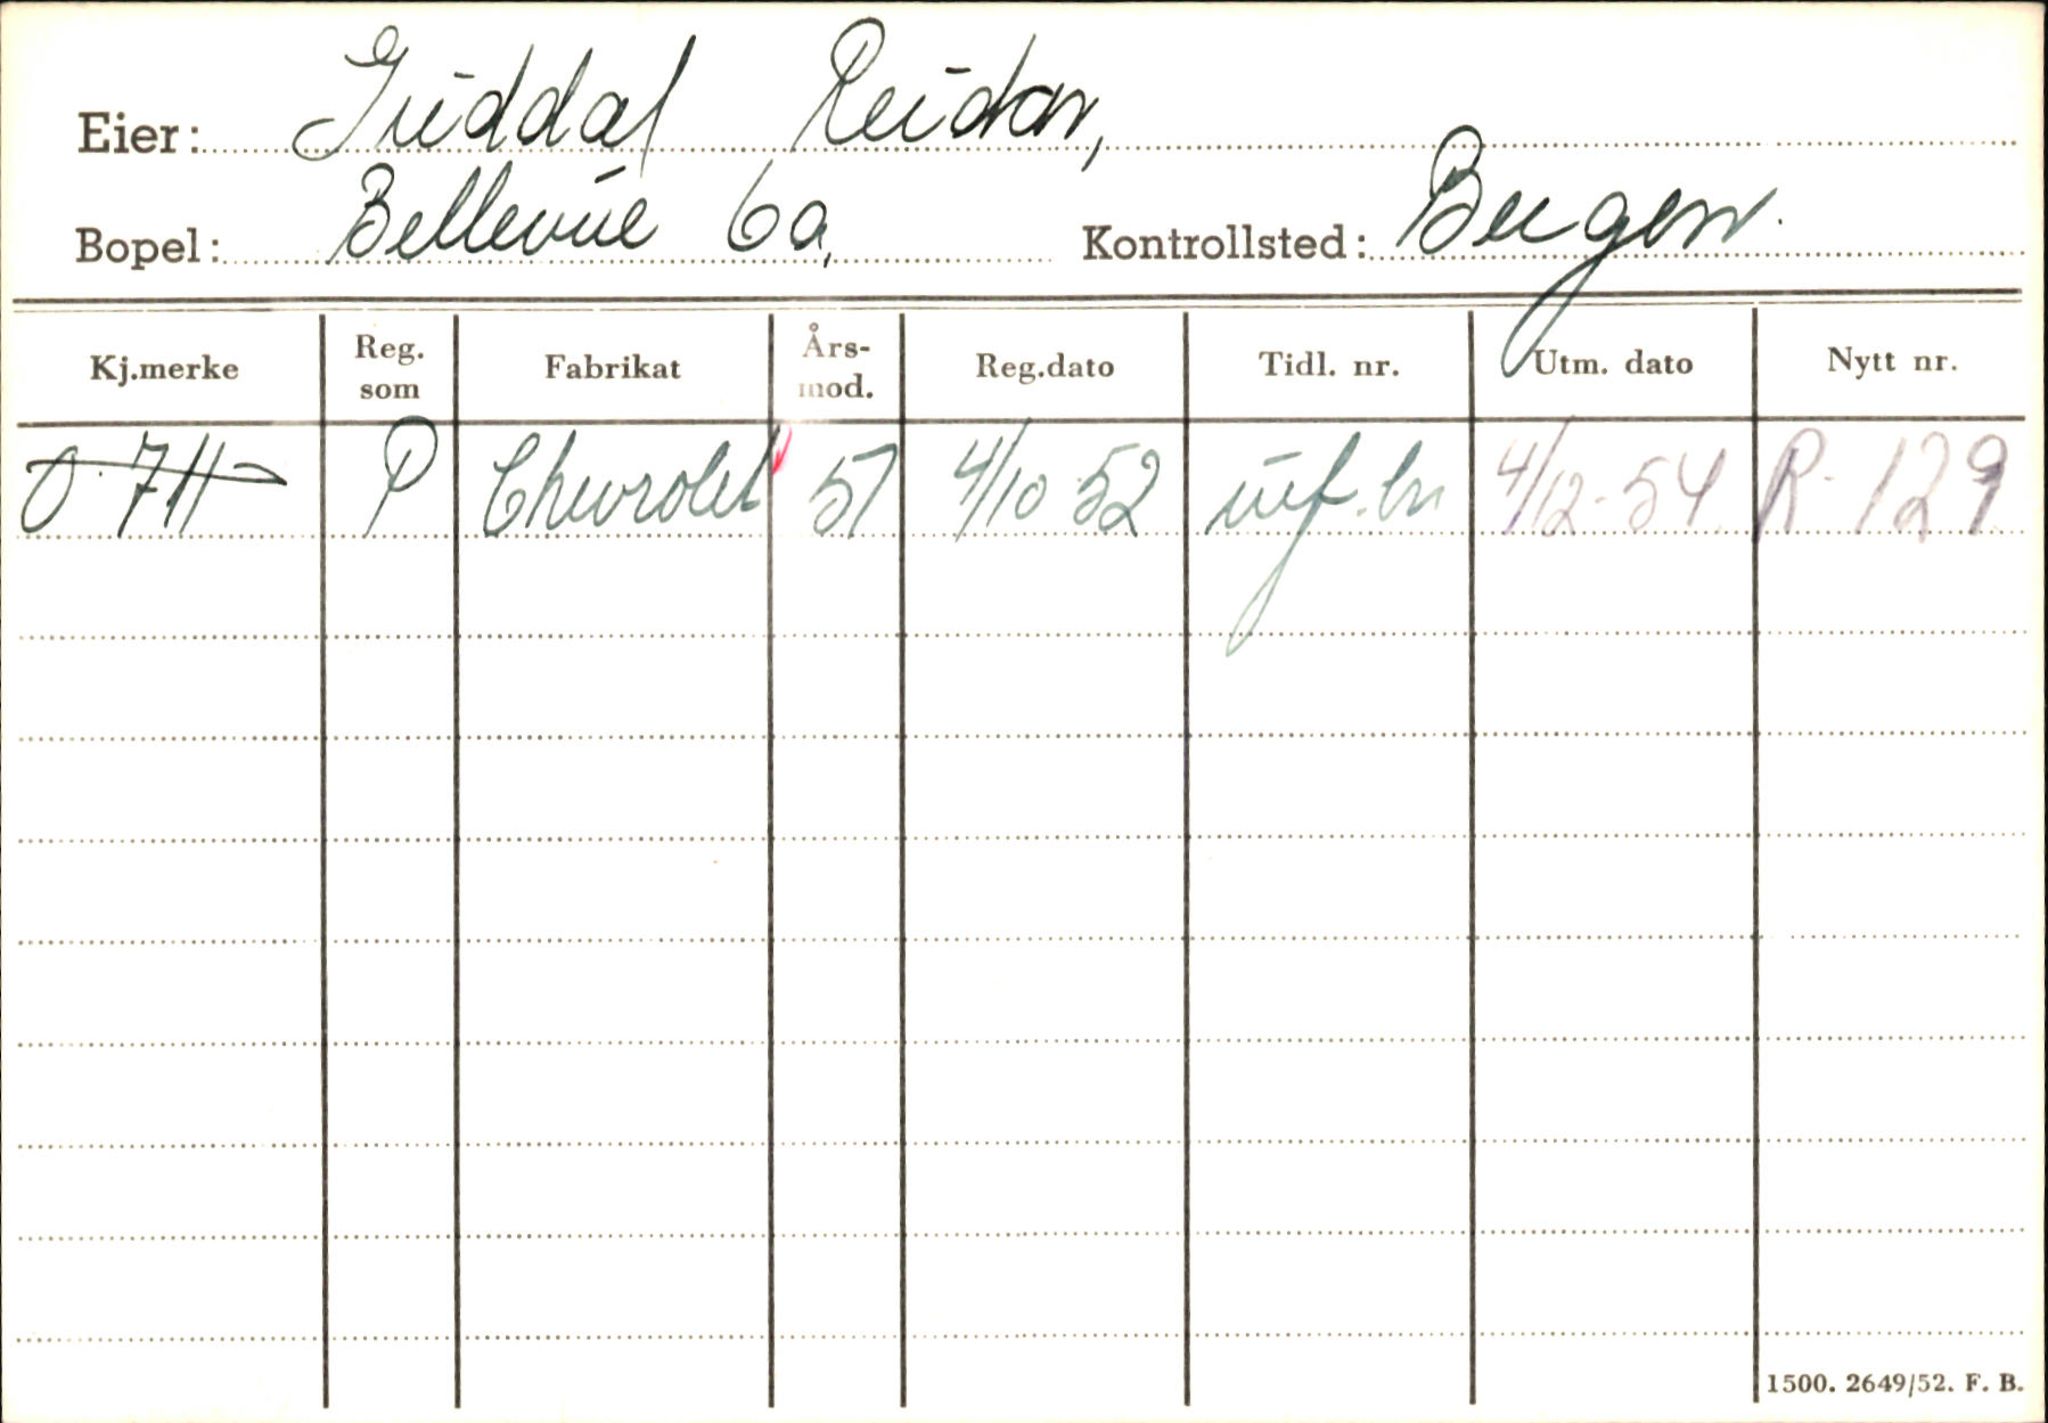 Eier: Guddal Reidar,
Bopel: Bellevue 6a, Kontrollsted: Bergen.
Kj.merke Reg. som Fabrikat Års-mod. Reg.dato Tidl. nr. Utm. dato Nytt nr.
O-711 P Chevrolet 51 4/10 52 4/12-54 R-129
1500. 2649/52. F. B.